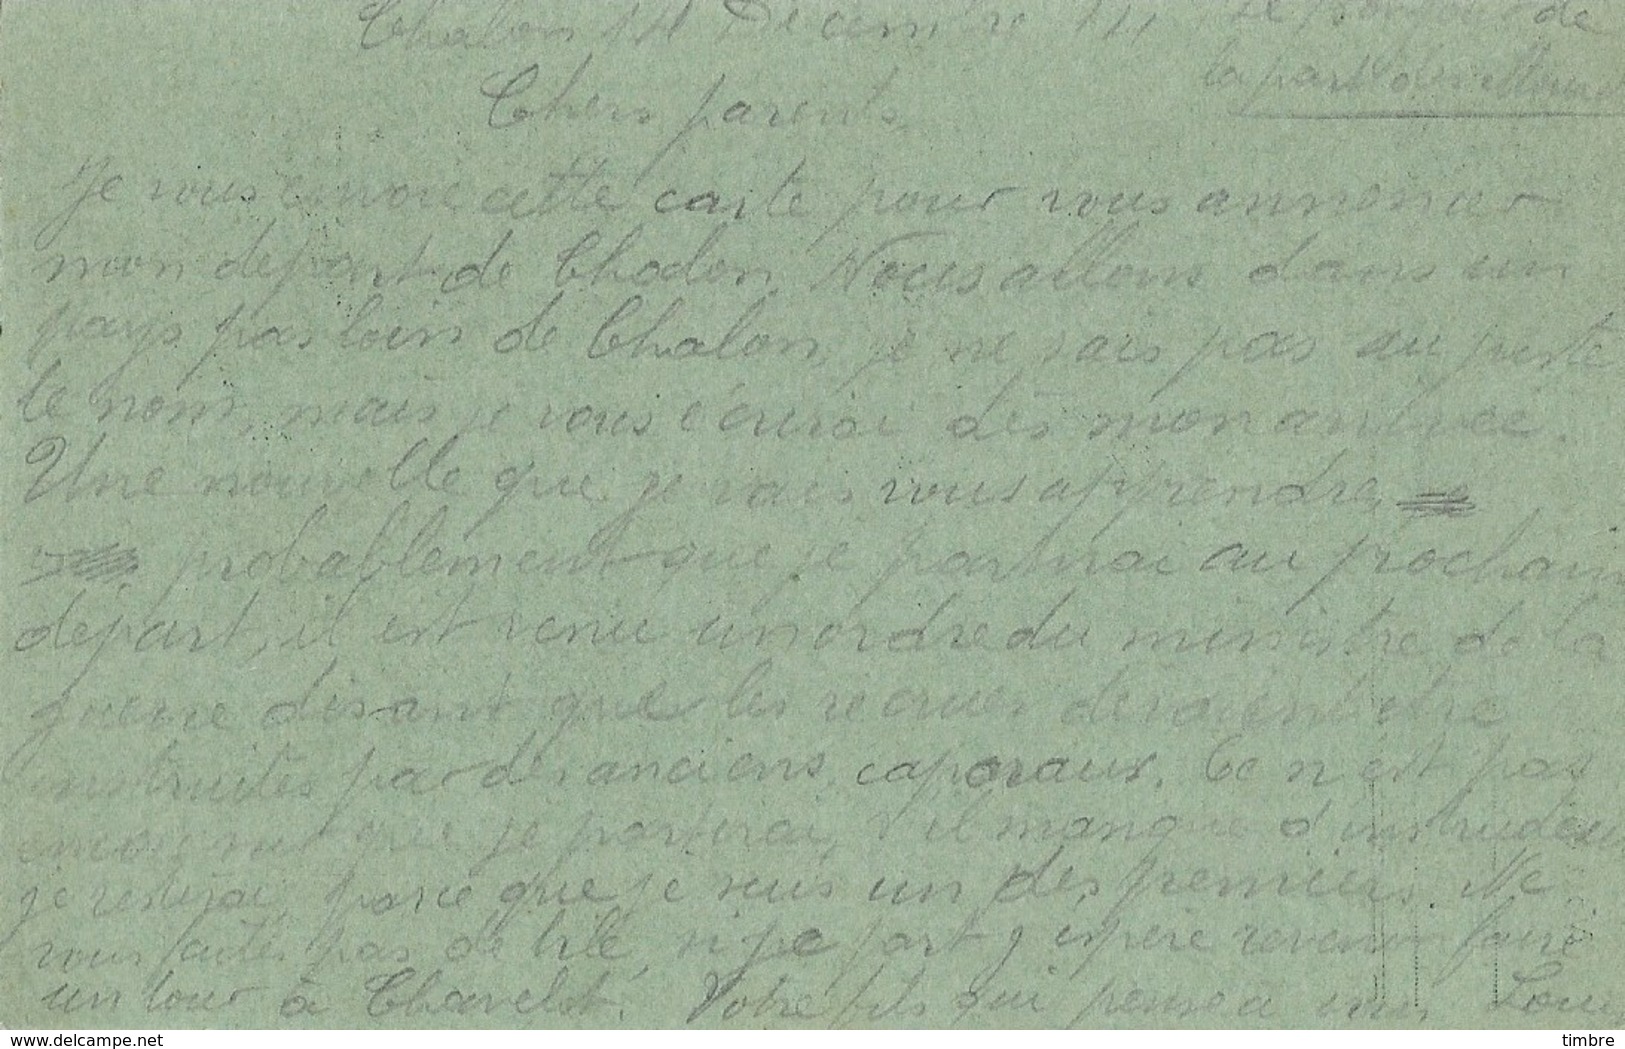 Chalon 14 Décembre 14
Le bonjour de
la part des
Chers parents,
Je vous envoie cette carte pour vous annoncer
mon depart de Chalon. Nous allons dans un
pays pas loin de Chalon, je ne sais pas au juste
le nom, mais je vous écrirai dès mon arrivée.
Une nouvelle que je vais vous apprendre
probablement que je partirai au prochain
départ, il est venu un ordre du ministre de la
guerre disant que les recrues devraient être
instruites par des anciens caporaux. Ce n'est pas
encore que je partirai, s'il manque d'instructeurs
je resterai, parce que je suis un des premiers. Ne
vous faites pas de bile, si je part j'espère revenir faire
un tour à Chavelot. Votre fils qui pense à vous Louis
www.delcampe.net
timbre